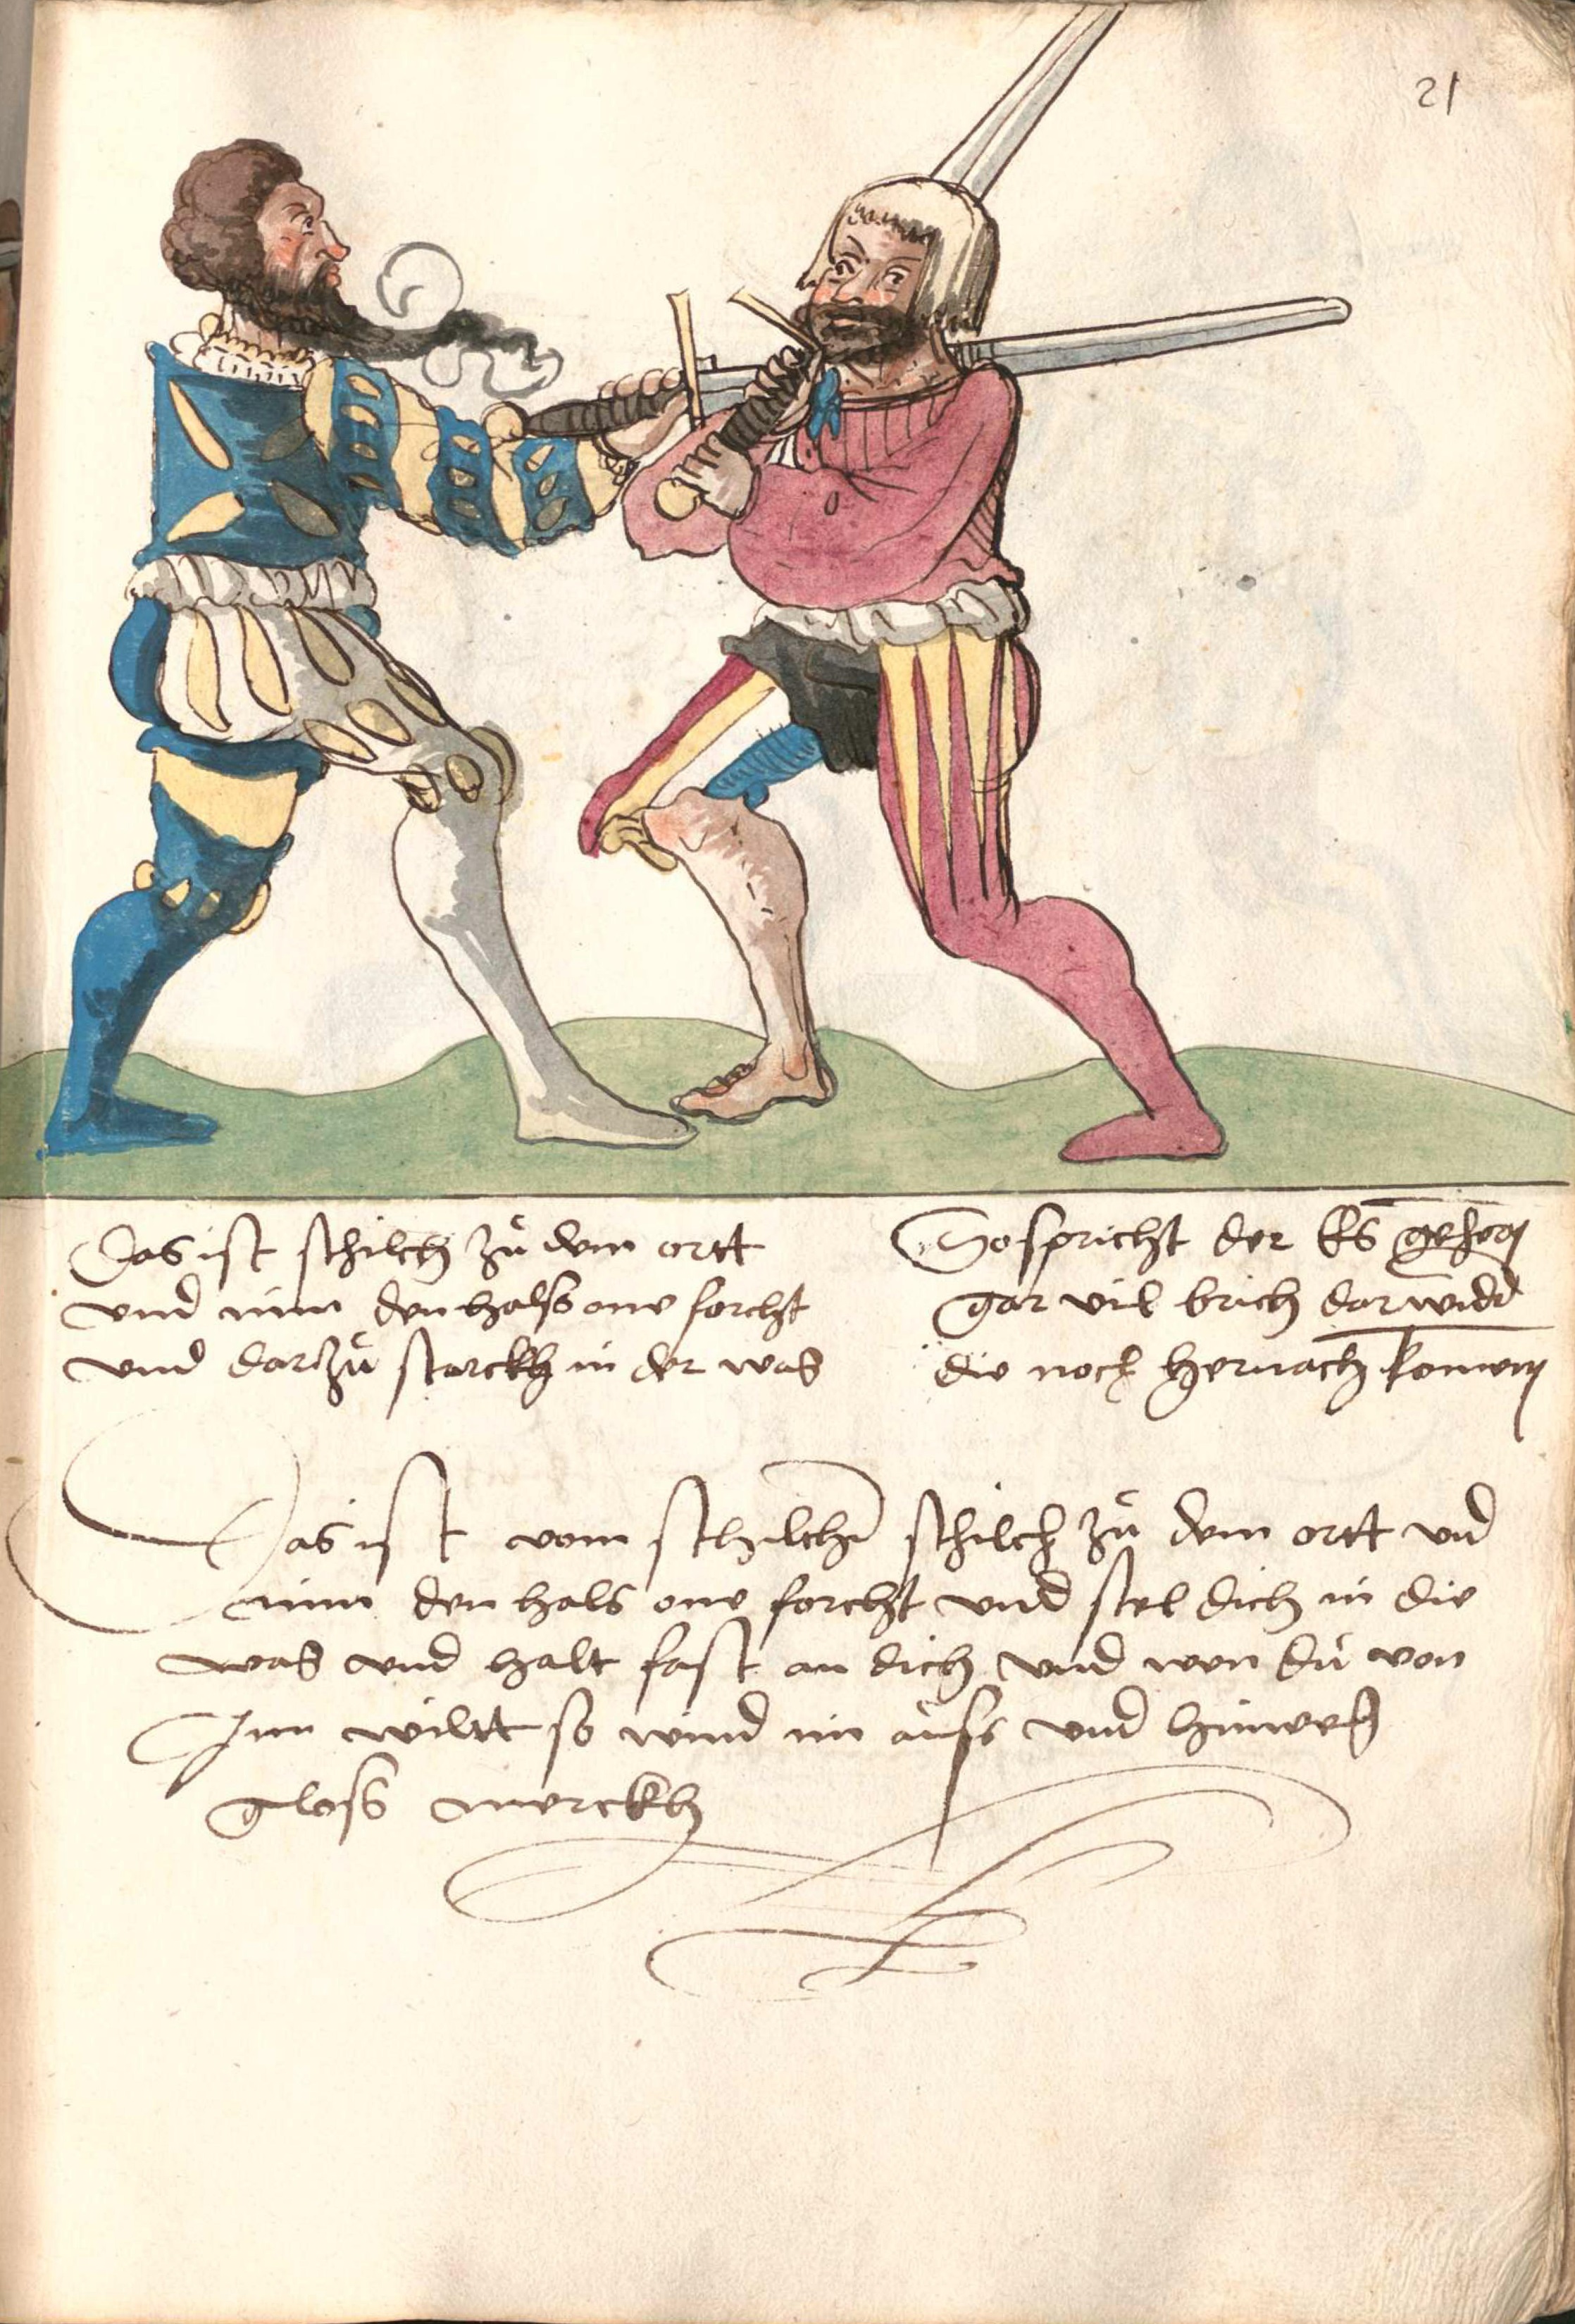 21
Das ist schilch zů dem ortt
vnd nim den halss one forcht
vnd darzů starckh in der was
So spricht der
gar vil brich darwidd
die noch hernach komen
Das ist vom schilch zů dem ortt vnd
nim den hals one forcht vnd stel dich in die
was vnd halt fast an dich vnd wen dů von
Im wiltt so wind im auss vnd hinweg
gloss merckh